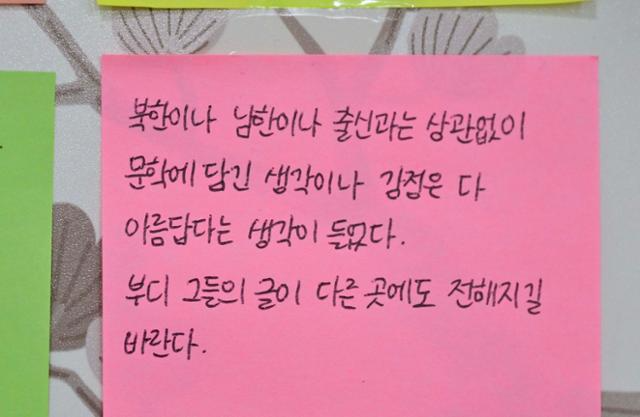 북한이나 남한이나 출신과는 상관없이
문학에 담긴 생각이나 감정은 다
아름답다는 생각이 들었다.
부디 그들의 글이 다른 곳에도 전해지길
바란다.